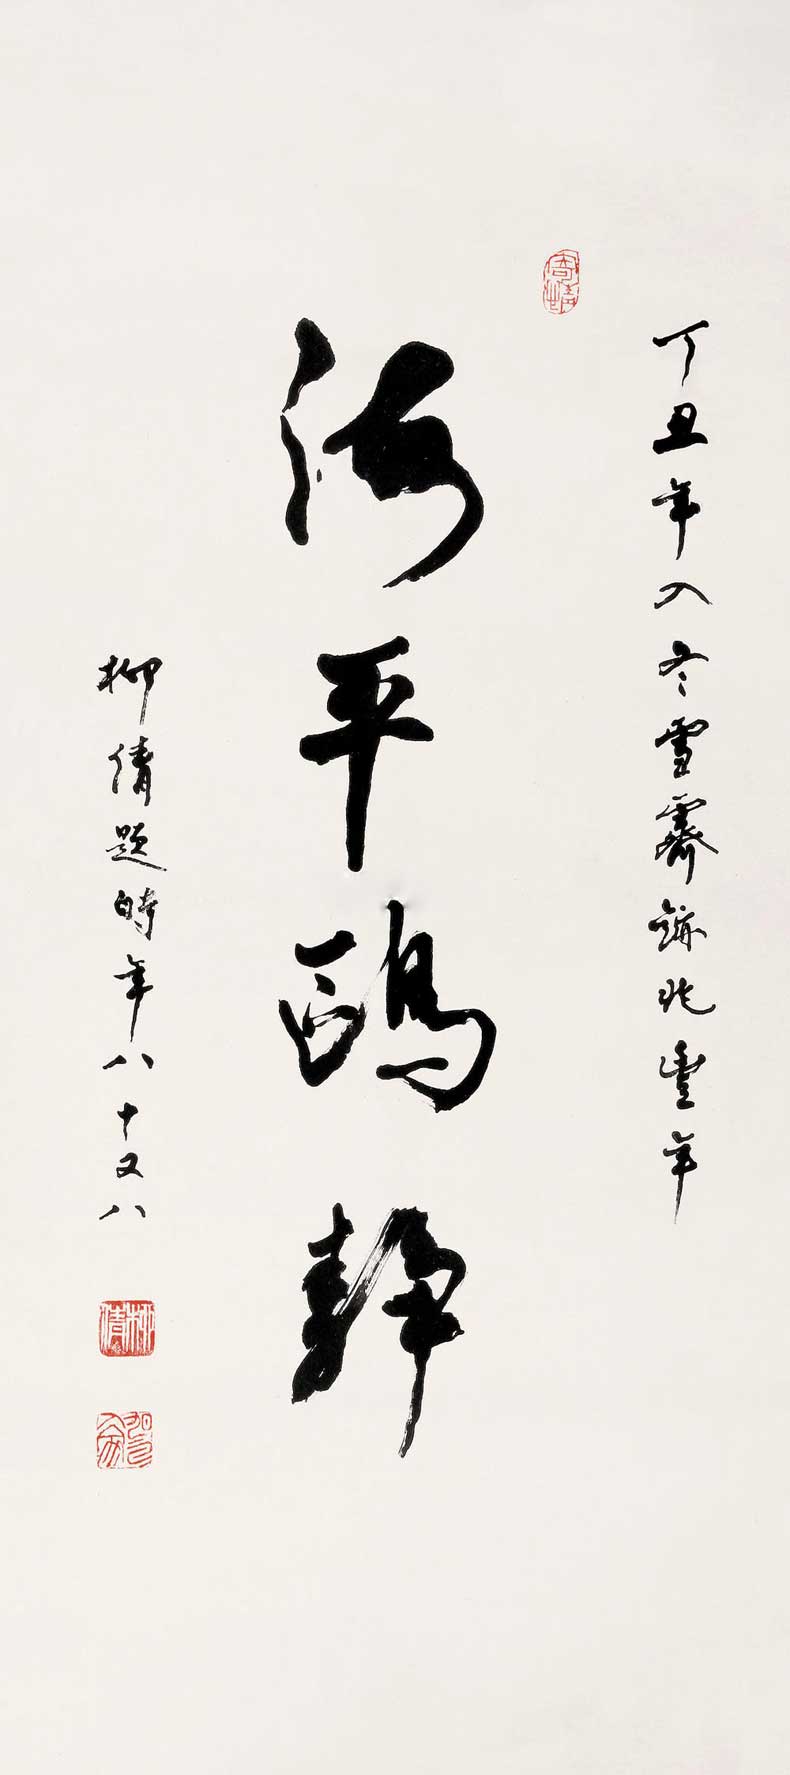 丁丑年入冬雪霽跡兆豐年
海平鷗靜
柳倩題時年八十又八
柳倩